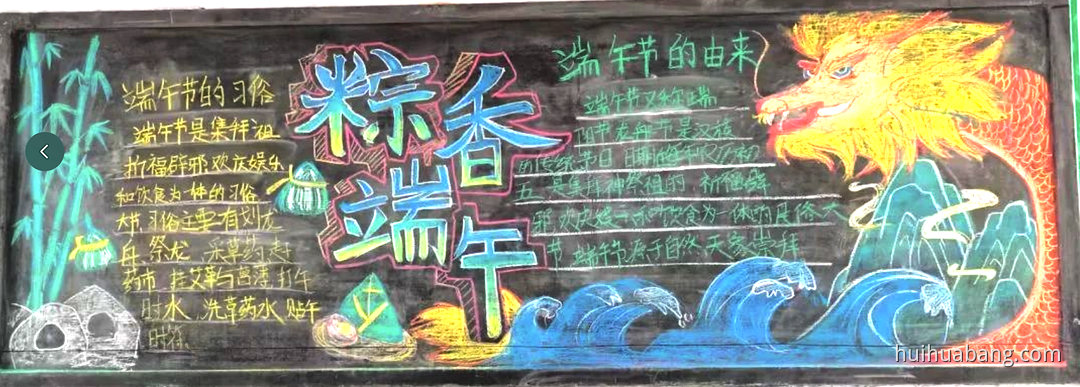 端午节的习俗
端午节是集拜祖
祈福辟邪欢庆娱乐
和饮食为一体的习俗
大节习俗主要有划龙
舟.祭龙 采草药.赶
药市 挂艾草与菖蒲 打午
时水.洗草药水.贴午
时符.
粽香
端午
端午节的由来
端午节又称端
阳节 龙舟节是汉族
的传统节日 日期
五 是集拜神祭祖的 祈福辟
邪欢庆娱乐和饮食为一体的民俗大
节 端午节源于自然天象崇拜
huihuabang.com